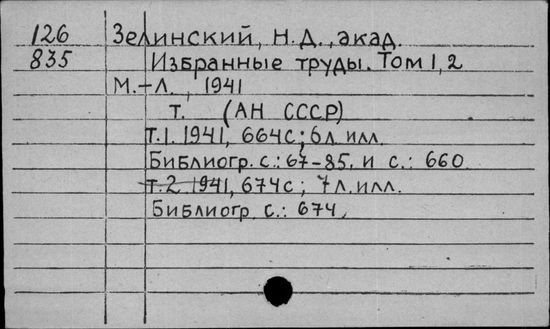 126 Зелинский, Н.Д., акад.
835 Избранные труды. Том 1, 2
М.-Л., 1941
т. (АН СССР)
Т.1. 1941, 664с; 6л. илл.
Библиогр. с.: 67-85, и с.: 660
т.2 1941, 674с; 7л. илл.
Библиогр. с.: 674,